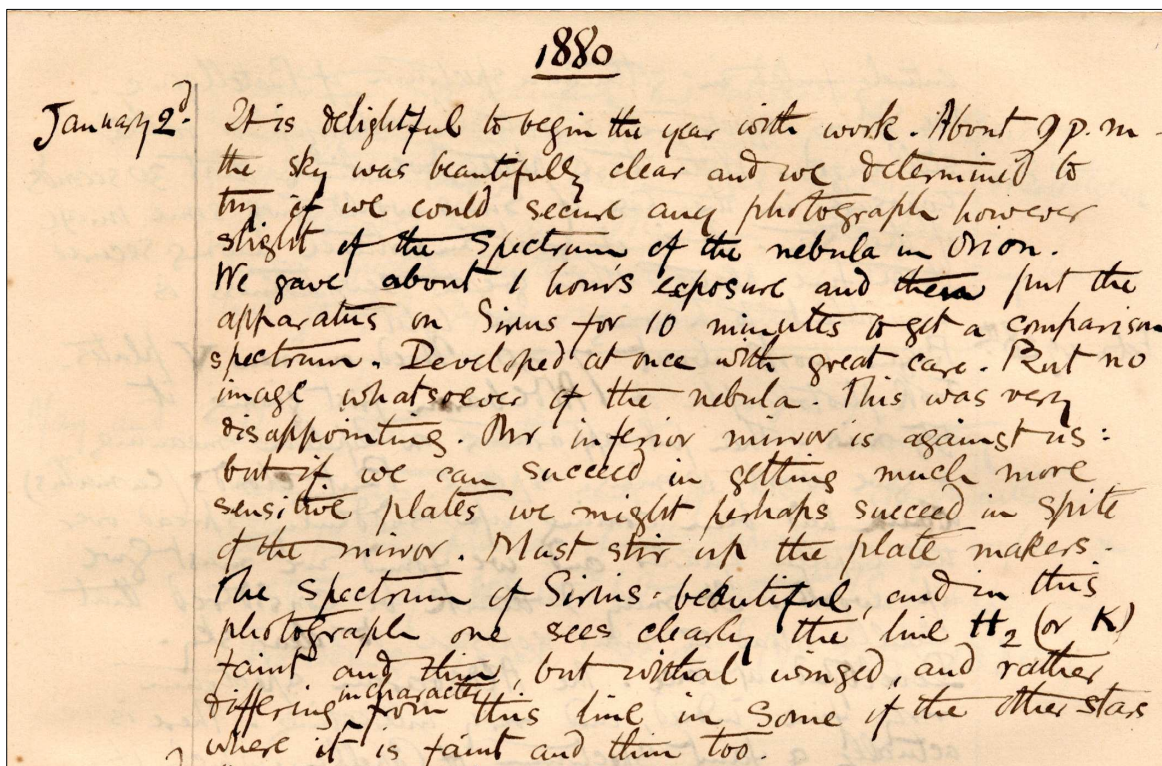 1880
January 2d. It is delightful to begin the year with work. About 9 p.m.
the sky was beautifully clear and we determined to
try if we could secure any photograph however
slight of the spectrum of the nebula in Orion.
We gave about 1 hours exposure and then put the
apparatus on Sirius for 10 minutes to get a comparison
spectrum. Developed at once with great care. But no
image whatsoever of the nebula. This was very
disappointing. Our inferior mirror is against us:
but if we can succeed in getting much more
sensitive plates we might perhaps succeed in spite
of the mirror. Must stir up the plate makers.
The spectrum of Sirius: beautiful, and in this
photograph one sees clearly the line H2 (or K)
faint and thin, but withal winged, and rather
differing in character from this line in some of the other stars
where it is faint and thin too.